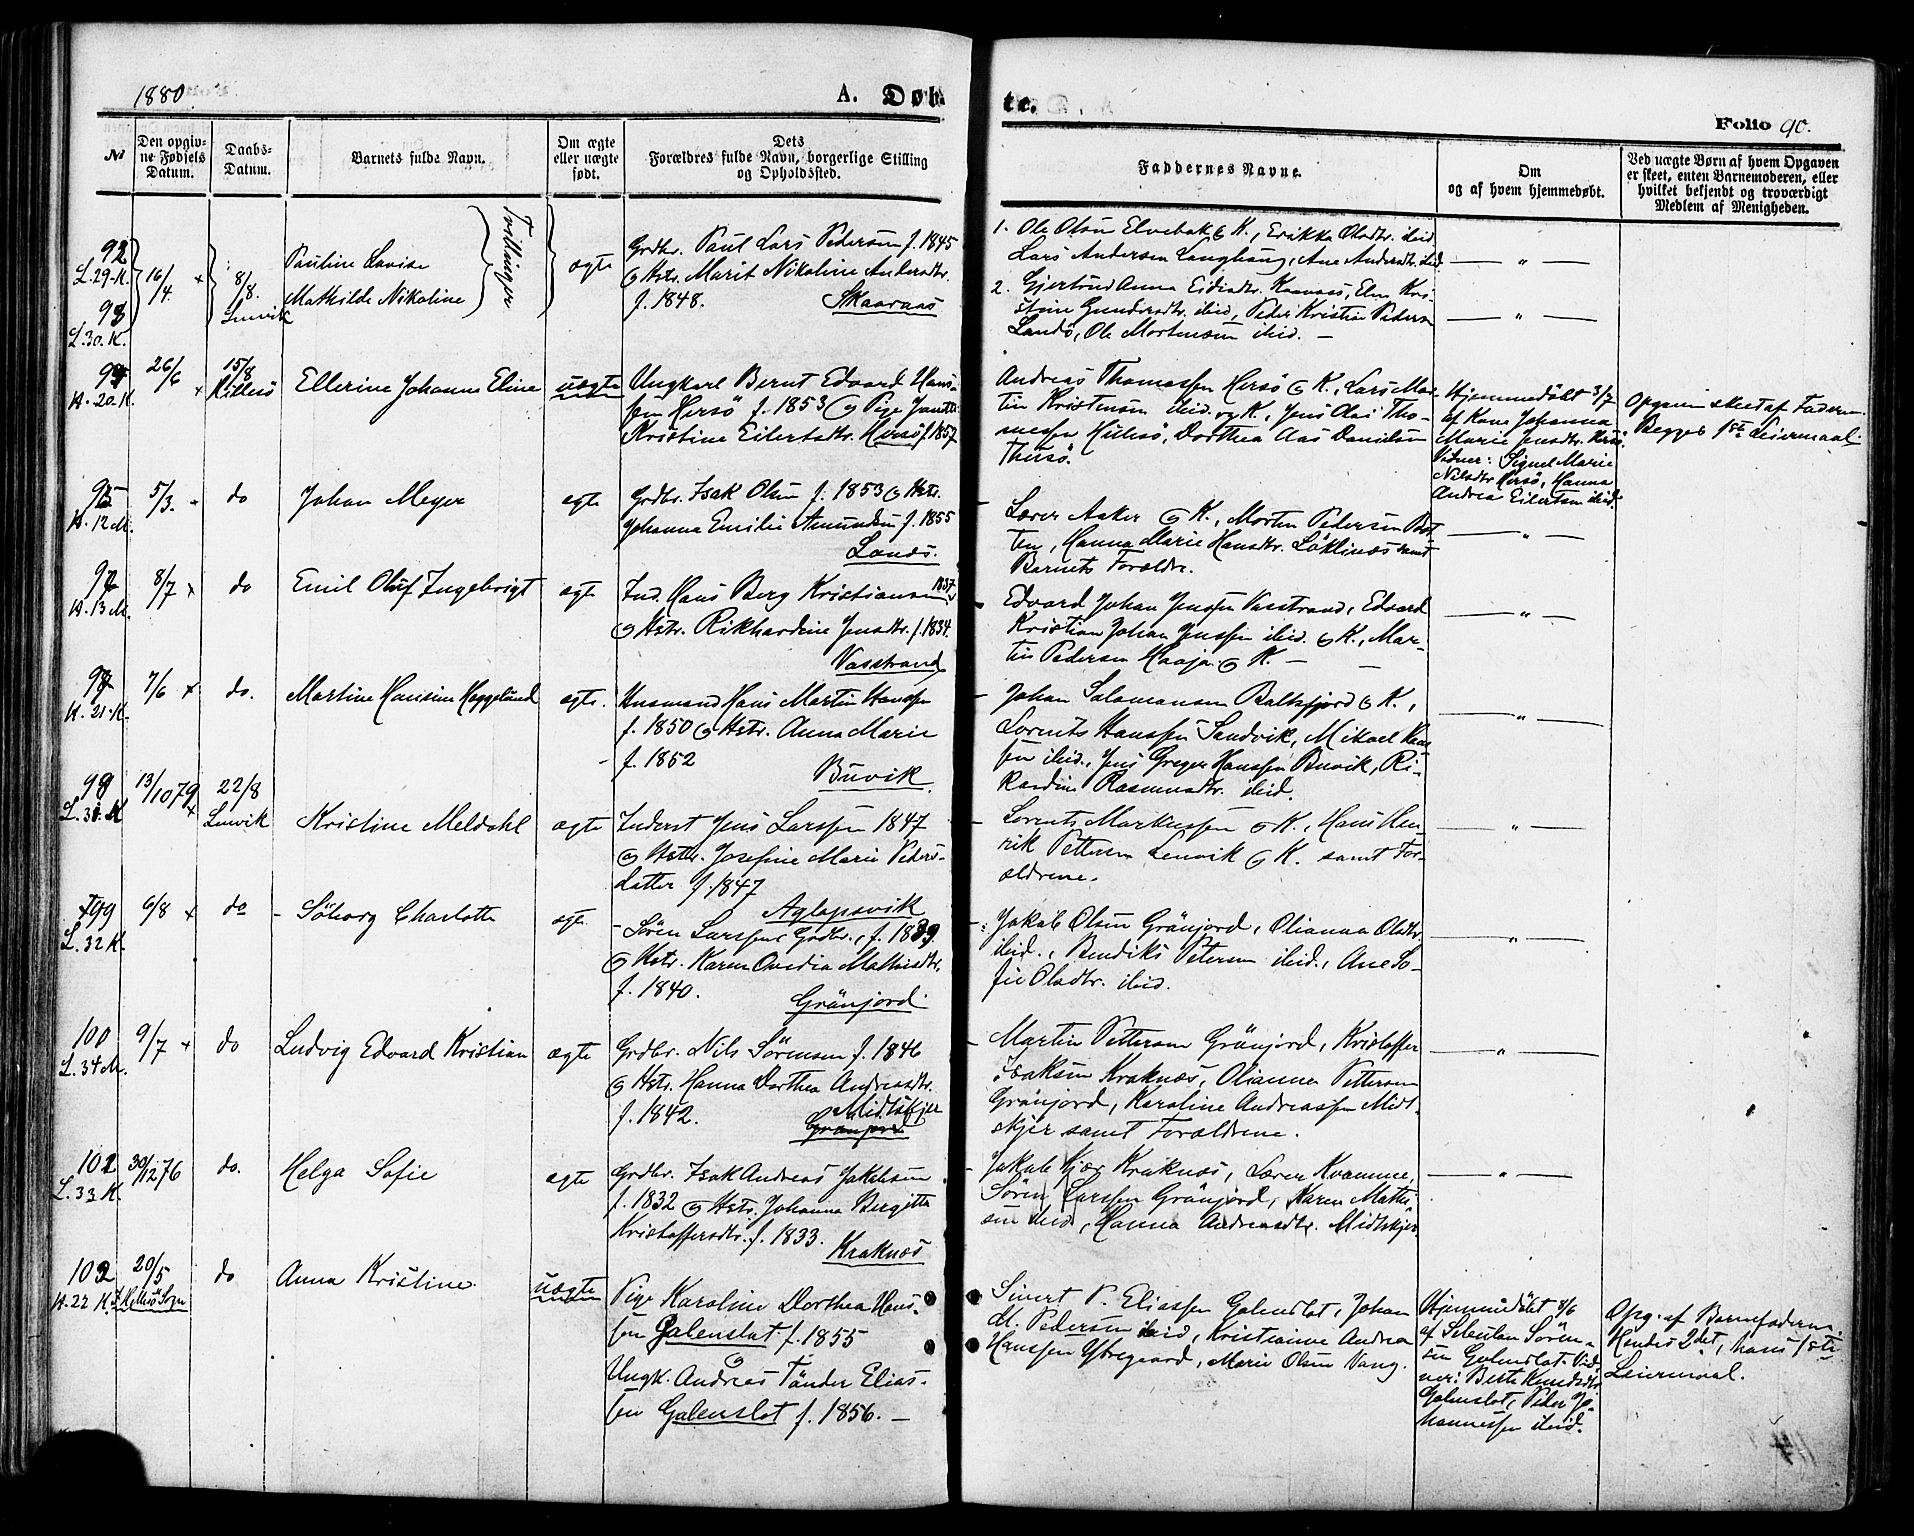 1880.
A. Døb-
te.
Folio 90.
№
Den opgiv-
ne Fødsels
Datum.
Daabs-
Datum.
Barnets fulde Navn.
Om ægte
eller uægte
født.
Dets
Forældres fulde Navn, borgerlige Stilling
og Opholdssted.
Faddernes Navne.
Om
og af hvem hjemmedøbt.
Ved uægte Børn af hvem Opgaven
er skeet, enten Barnemoderen, eller
hvilket bekjendt og troværdigt
Medlem af Menigheden.
92
L.29.K.
93
L.30.K.
16/4. x
8/8.
Lenvik
Pauline Lovise
Mathilde Nikoline
Tvillinger
ægte
Grdbr. Paul Lars Pedersen f. 1845
og Hstr. Marit Nikoline Andersdtr.
f. 1848. Skaaraas
1. Ole Olsen Elvebak og K., Erikka Olsdtr. ibid.
Lars Andersen Langhaug, Ane Andersdtr. ibid
2. Gjertrud Anna Eidisdtr. Kaavaas, Elen Kri-
stine Gundersdtr. ibid, Peder Kristian Pedersen
Landø, Ole Mortensen ibid. —
— " —
— " —
94
H.20.K.
26/6 x
15/8
Hillesø
Ellerine Johanne Eline
uægte
Ungkarl Bernt Edvard Hans-
sen Hersø f. 1853 og Pige Janette
Kristine Eilertsdtr. Hersø f. 1857
Andreas Thomassen Hersø og K., Lars Mar-
tin Kristensen ibid. og K., Jens Olai Tho-
massen Hillesø, Dorthea Aas Danielsen
Hersø.
Hjemmedøbt 3/7
af Kone Johanna
Marie Jensdtr. Hersø.
Vidner: Signel Marie
Nilsdtr. Hersø, Hanna
Andrea Eilertsen ibid.
Opgaven skeet af Faderen.
Begges 1ste Leiermaal.
95
H.12.M.
5/3.
do
Johan Meyer
ægte
Grdbr. Isak Olsen f. 1853 og Hstr.
Johanna Emilie Amundsen f. 1855
Lanes.
Lærer Aaker og K., Morten Pedersen Bot-
ten, Hanna Marie Hansdtr. Løklines samt
Barnets Forældre.
— " —
H.13.M.
8/7 x
do
Emil Oluf Ingebrigt
ægte
Ind. Hans Berg Kristiansen 1837
og Hstr. Rikhardine Jensdtr. f. 1834.
Vasstrand
Edvard Johan Jenssen Vasstrand, Edvard
Kristian Johan Jenssen ibid. og K., Mar-
tin Pedersen Haaja og K. —
— " —
97
H.21.K.
7/6 x
do.
Martine Hansine Heggelund
ægte.
Husmand Hans Martin Hanssen
f. 1850 og Hstr. Anna Marie
f. 1852
Buvik
Johan Salamonsen Balsfjord og K.,
Lornts Hanssen Sandvik, Mikael Hans-
sen ibid., Jens Greger Hanssen Buvik, Ri-
kardine Rasmusdtr. ibid.
— " —
98
L.31.K
13/10 79 x
22/8
Lenvik
Kristine Meldahl
ægte
Inderst Jens Larssen 1847
og Hstr. Josefine Marie Peders-
datter f. 1847
Aglapsvik
Lorents Markussen og K., Hans Hen-
rik Pettersen Lenvik og K. samt For-
ældrene.
— " —
99
L.32 K.
6/8 x
do
Søborg Charlotte
ægte
Søren Larssen, Grdbr., f. 1839
og Hstr. Karen Ovedia Mathisdtr.
f. 1840.
Grånjord.
Jakob Olsen Grånjord, Olianna Olsdtr.
ibid., Bendiks Petersen ibid., Ane So-
fie Olsdtr. ibid.
— " —
100
L.34M.
9/7 x
do
Ludvig Edvard Kristian
ægte
Grdbr. Nils Sørensen f. 1846
og Hstr. Hanna Dorthea Andreasdtr.
f. 1842. Midtskjer
Grånjord
Martin Pettersen Grånjord, Kristoffer
Isaksen Kraknæs, Olianna Pettersen
Grånjord, Karoline Andreassen Midt-
skjer samt Forældrene.
— " —
101
L.33 K.
30/12 76
do.
Helga Sofie
ægte
Grdbr. Isak Andreas Jakobsen
f. 1832 og Hstr. Johanna Bergitte
Kristoffersdtr. f. 1833.
Kraknæs
Jakob Kjær Kraknæs, Lærer Kvamme,
Søren Larssen Grånjord, Karen Mathi-
sen ibid, Hanna Andreasdtr. Midtskjer
— " —
102
H.22 K.
20/5
Hillesø Sogn
do
Anna Kristine
uægte
Pige Karoline Dorthea Hans-
sen Galenslot f. 1855
og
Ungk. Andreas Tønder Elias-
sen Galenslot f. 1856. —
Sivert P. Eliassen Galenslot, Johan
M. Pedersen ibid, Kristianne Andrea
Hanssen Ytregaard, Marie Olsen Vang.
Hjemmedøbt 8/6
af Søren-
sen Galenslot. Vid-
ner: Berte Knudsdtr.
Galenslot, Peder Jo-
hannessen ibid.
Opg. af Barnefaderen.
Hendes 2det, hans 1ste
Leiermaal.